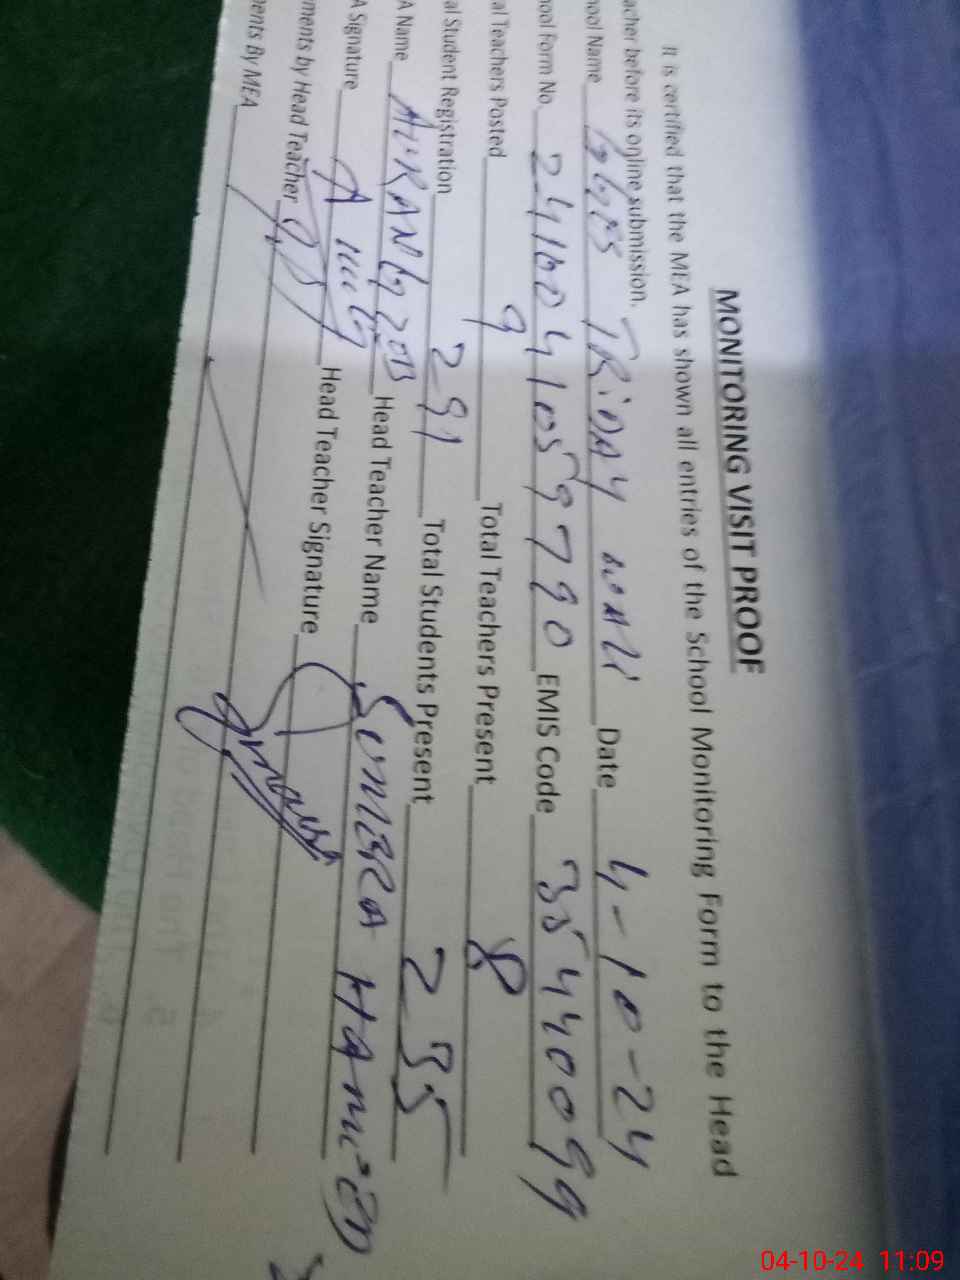 MONITORING VISIT PROOF
It is certified that the MEA has shown all entries of the School Monitoring Form to the Head
acher before its online submission.
hool Name GGES Date 4-10-24
hool Form No. EMIS Code 35440099
al Teachers Posted 9 Total Teachers Present 8
al Student Registration 291 Total Students Present 235
A Name AURANGZEB Head Teacher Name SUMERA HAMEED
A Signature Head Teacher Signature
ments by Head Teacher
ents By MEA
04-10-24 11:09